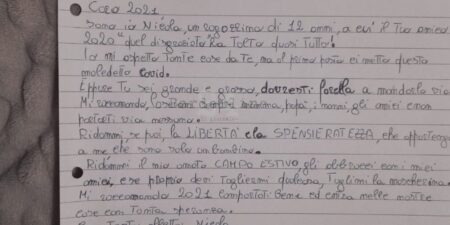 Caro 2021
Sono io Nicola, un ragazzino di 12 anni, a cui il tuo amico
2020 "quel disgraziato" ha tolto quasi tutto!
Io mi aspetto tante cose da te, ma al primo posto ci metto questo
maledetto covid.
Eppure tu sei grande e grosso, dovresti farcela a mandarlo via
Mi raccomando, mamma, papà, i nonni, gli amici e non
portarti via nessuno.
Ridammi, se puoi, la LIBERTÀ e la SPENSIERATEZZA, che appartengono
a me che sono solo un bambino.
Ridammi il mio amato CAMPO ESTIVO, gli abbracci con i miei
amici, e se proprio devi togliermi qualcosa, toglimi la mascherina.
Mi raccomando 2021 comportati bene ed entra nelle nostre
case con tanta speranza.
Nicola